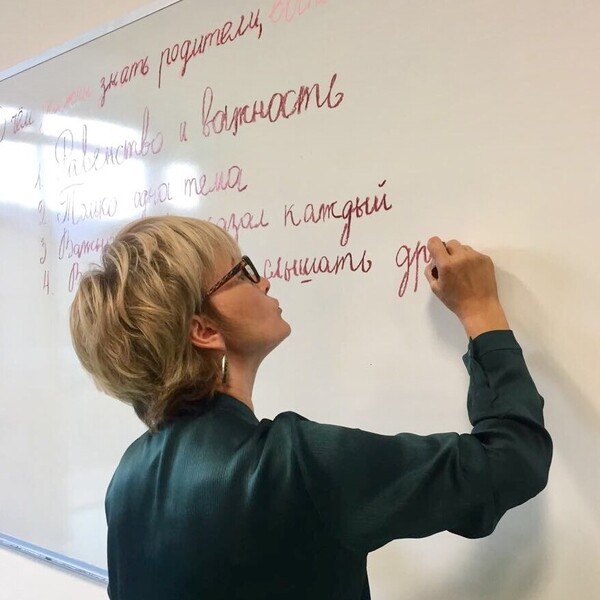 чём знать родители,
1 Равенство и важность
2 Только одна тема
3 Важно каждый
4. слышать др